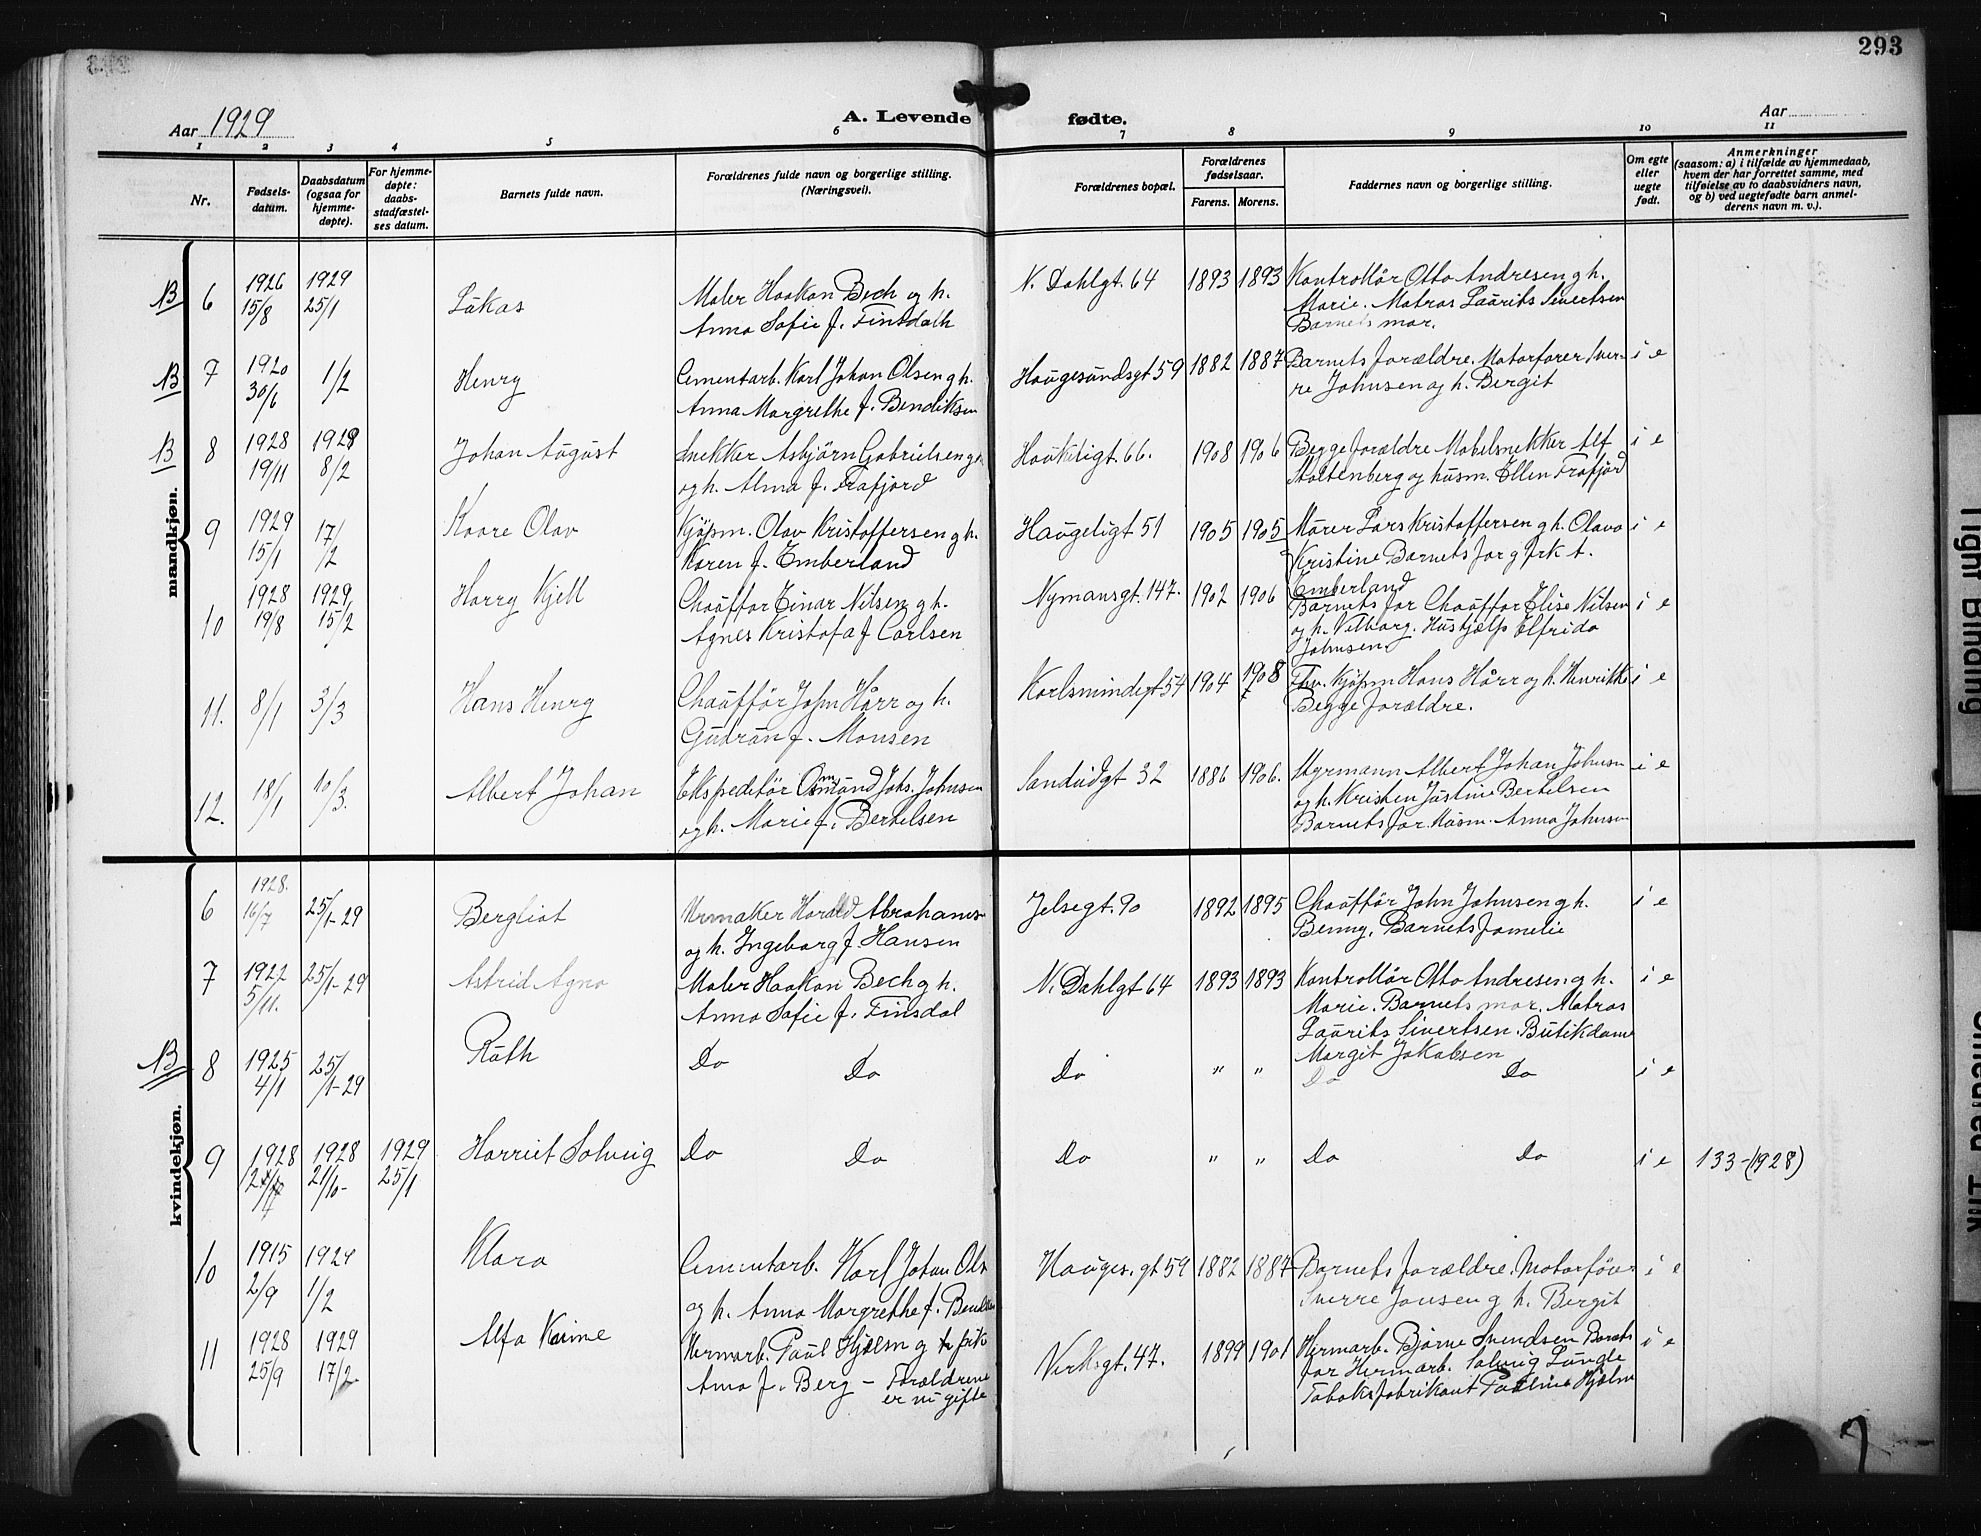 293
Aar 1929
A. Levende fødte.
Aar
1 2 3 4 5 6 7 8 9 10 11
Nr.
Fødsels-
datum.
Daabsdatum
(ogsaa for
hjemme-
døpte).
For hjemme-
døpte:
daabs-
stadfæstel-
ses datum.
Barnets fulde navn.
Forældrenes fulde navn og borgerlige stilling.
(Næringsvei).
Forældrenes bopæl.
Forældrenes
fødselsaar.
Farens. Morens.
Faddernes navn og borgerlige stilling.
Om egte
eller
uegte
født.
Anmerkninger
(saasom: a) i tilfælde av hjemmedaab,
hvem der har forrettet samme, med
tilføielse av to daabsvidners navn,
og b) ved uegtefødte barn anmel-
derens navn m. v.).
mandkjøn.
NB 6 1926 15/8 1929 25/1 Lukas
Maler Haakon Bech og h.
Anna Sofie f. Finsdalh
N. Dahlgt. 64 1893 1893
Kontrollör Otto Andresen g h.
Marie. Matros Laurits Sivertsen
Barnets mor.
NB 7 1920 30/6 1/2 Henry
Cementarb. Karl Johan Olsen g h.
Anna Margrethe f. Bendiksen
Haugesundsgt 59 1882 1887
Barnets forældre. Motorfører Sver-
re Johnsen og h. Bergit
i e
NB 8 1928 19/11 1929 8/2 Johan August
Snekker Asbjörn Gabrielsen
og h. Alma f. Frafjord
Haukeligt. 66. 1908 1906
Begge forældre Møbelsnekker Alf
Stoltenberg og husm. Ellen Frafjord
i e
9 1929 15/1 17/2 Kaare Olav
Kjöpm. Olav Kristoffersen g h.
Karen f. Emberland
Haugeligt 51 1905 1905
Murer Lars Kristoffersen g h. Olava
Kristine Barnets far g frk t.
Emberland
i e
10 1928 19/8 1929 15/2 Harry Kjell
Chauffør Einar Nilsen g h.
Agnes Kristofa f Carlsen
Nymansgt. 147. 1902 1906
Barnets far Chauffør Elise Nilsen
og h. Vilborg. Hushjælp Elfrida
Johnsen
i e
11. 8/1 3/3 Hans Henry
Chaufför John Hårr og h.
Gudrun f. Monsen
Karlsmindegt 54 1904 1908
Fhv. Kjöpm Hans Hårr og h. Henrikke
Begge forældre.
i e
12. 18/1 10/3. Albert Johan
Ekspeditör Osmund Johs. Johnsen
og h. Marie f. Bertelsen
Sandvidgt 32 1886 1906.
Styrmann Albert Johan Johnsen
og h. Kristen Justine Bertelsen
Barnets far. Husm. Anna Johnsen
i e
kvindekjøn.
6 1928. 16/7 25/1-29 Bergliot
Urmaker Harald Abrahams
og h. Ingeborg f. Hansen
Jelsegt. 90 1892 1895
Chaufför John Johnsen g h.
Benny. Barnets familie
i e
7 1922 5/11. 25/1-29 Astrid Agna
Maler Haakon Bech g h.
Anna Sofie f. Finsdal
N. Dahlgt 64 1893 1893
Kontrollör Otto Andresen g h.
Marie. Barnets mor. Matros
Laurits Sivertsen. Butikdame
Margit Jakobsen
i e
NB 8 1925 4/1 25/1-29 Ruth
Do Do Do " " Do Do i e
9 1928 1928 21/10- 1929 25/1 Harriet Solveig
Do Do Do " " Do Do i e 133-(1928)
10 1915 2/9 1929 1/2 Klara
Cementarb. Karl Johan Ols
og h. Anna Margrethe f. Bendiksen
Hauges. gt 59 1882 1887
Barnets forældre. Motorförer
Sverre Jonsen g h. Bergit
i e
11 1928 25/9 1929 17/2. Alfa Karine
Hermarb. Paul Hjelm g frk
Anna f. Berg – Forældrene
er nu gifte
Verksgt. 47. 1899 1901
Hermarb. Bjarne Svendsen Barnets
far Hermarb. Solveig Lunde
Tobaksfabrikant Pauline Hjelm
i e
Tight Binding
Smeared Ink